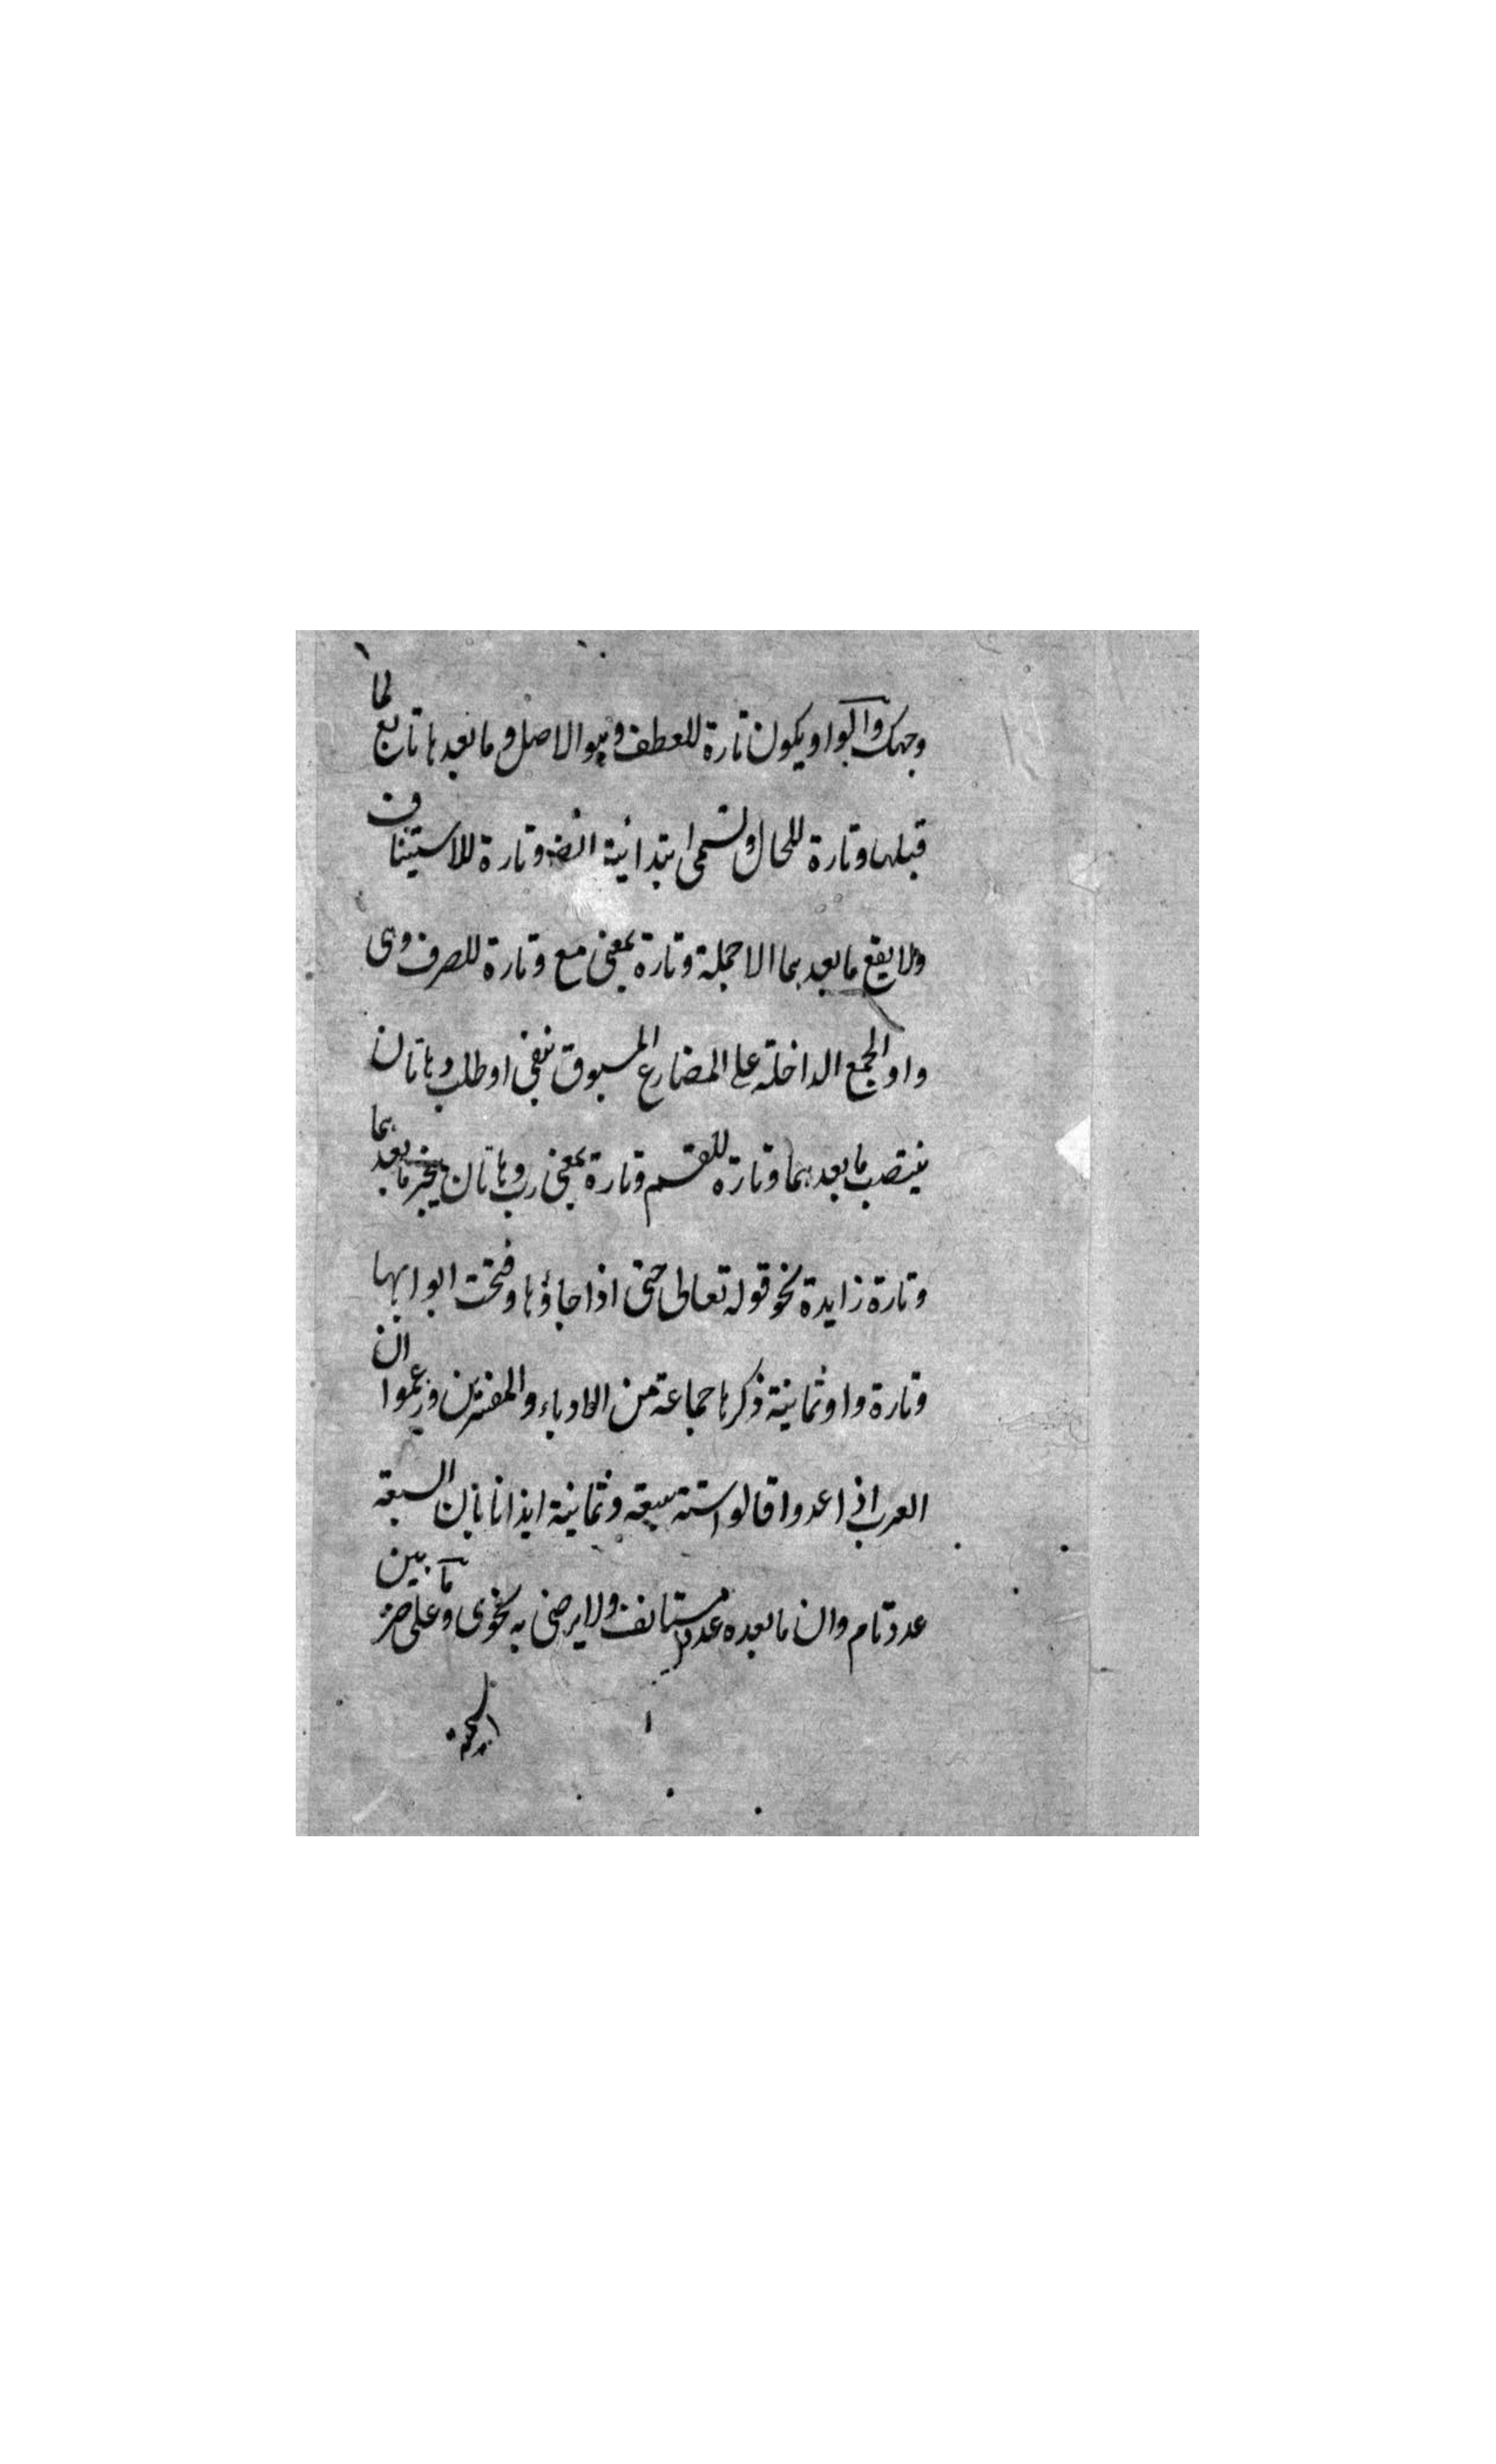 وجهك والواو يكون تارة للعطف وهو الاصل وما بعدها تابع لما
قبلها وتارة للحال وتسمى ابتدائية ايضا وتارة للاستيناف
ولا يقع ما بعدها الا جملة وتارة بمعنى مع وتارة للصرف وهى
واو الجمع الداخلة على المضارع المسبوق بنفى او طلب وهاتان
ينتصب ما بعدهما وتارة للقسم وتارة بمعنى رب وهاتان ينجر ما بعدهما
وتارة زايدة نحو قوله تعالى حتى اذا جاؤها وفتحت ابوابها
وتارة واو ثمانية ذكرها جماعة من الادباء والمفسرين وزعموا ان
العرب اذا عدوا قالوا ستة سبعة وثمانية ايذانا بان السبعة
عدد تام وان ما بعده عدد مستانف ولا يرضى به نحوى وما على حر بين